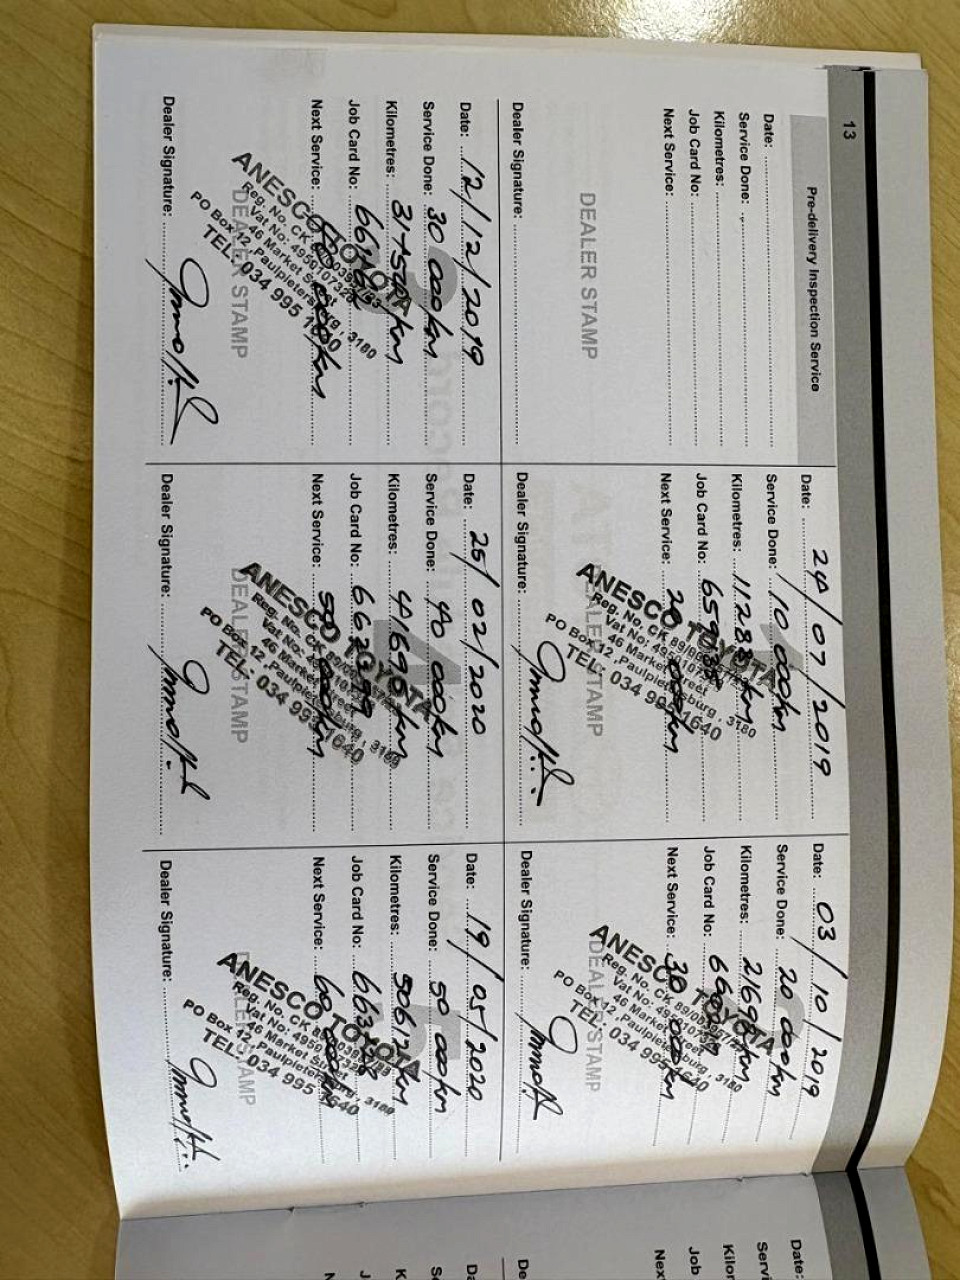 13
Pre-delivery Inspection Service
Date:
Service Done:
Kilometres:
Job Card No:
Next Service:
DEALER STAMP
Dealer Signature:
Date: 24/07/2019
Service Done: 10 000km
Kilometres: 11283km
Job Card No:
Next Service: 20 000km
1
ANESCO TOYOTA
Reg. No. CK
Vat No:
46 Market Street
PO Box 12, Paulpietersburg, 3180
TEL: 034 995 1640
DEALER STAMP
Dealer Signature:
Date: 03/10/2019
Service Done: 20 000km
Kilometres:
Job Card No:
Next Service: 30 000km
ANESCO TOYOTA
Reg. No. CK
Vat No:
46 Market Street
PO Box 12, Paulpietersburg, 3180
TEL: 034 995 1640
DEALER STAMP
Dealer Signature:
Date: 12/12/2019
Service Done: 30 000km
Kilometres:
Job Card No:
Next Service:
3
ANESCO TOYOTA
Reg. No. CK
Vat No: 4950107329
46 Market Street
PO Box 12, Paulpietersburg, 3180
TEL: 034 995 1640
DEALER STAMP
Dealer Signature:
Date: 25/02/2020
Service Done: 40 000km
Kilometres: 41696km
Job Card No:
Next Service: 50 000km
4
ANESCO TOYOTA
Reg. No. CK
Vat No:
46 Market Street
PO Box 12, Paulpietersburg, 3180
TEL: 034 995 1640
DEALER STAMP
Dealer Signature:
Date: 19/05/2020
Service Done: 50 000km
Kilometres: 50612km
Job Card No:
Next Service: 60 000km
ANESCO TOYOTA
Reg. No. CK
Vat No:
46 Market Street
PO Box 12, Paulpietersburg, 3180
TEL: 034 995 1640
DEALER STAMP
Dealer Signature:
Date: